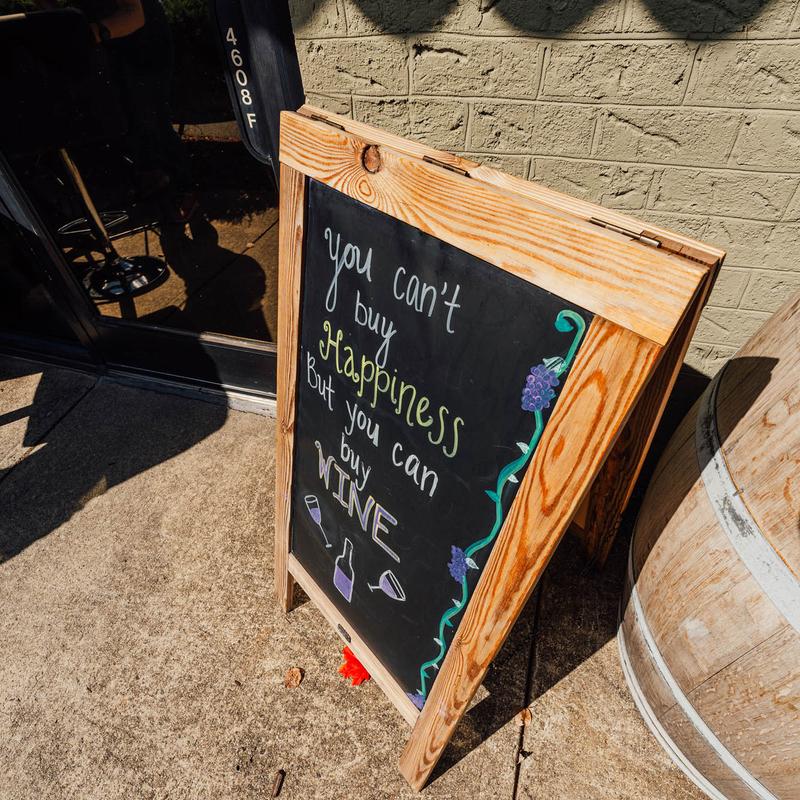 4608 F
you can't
buy
Happiness
But you can
buy
WINE